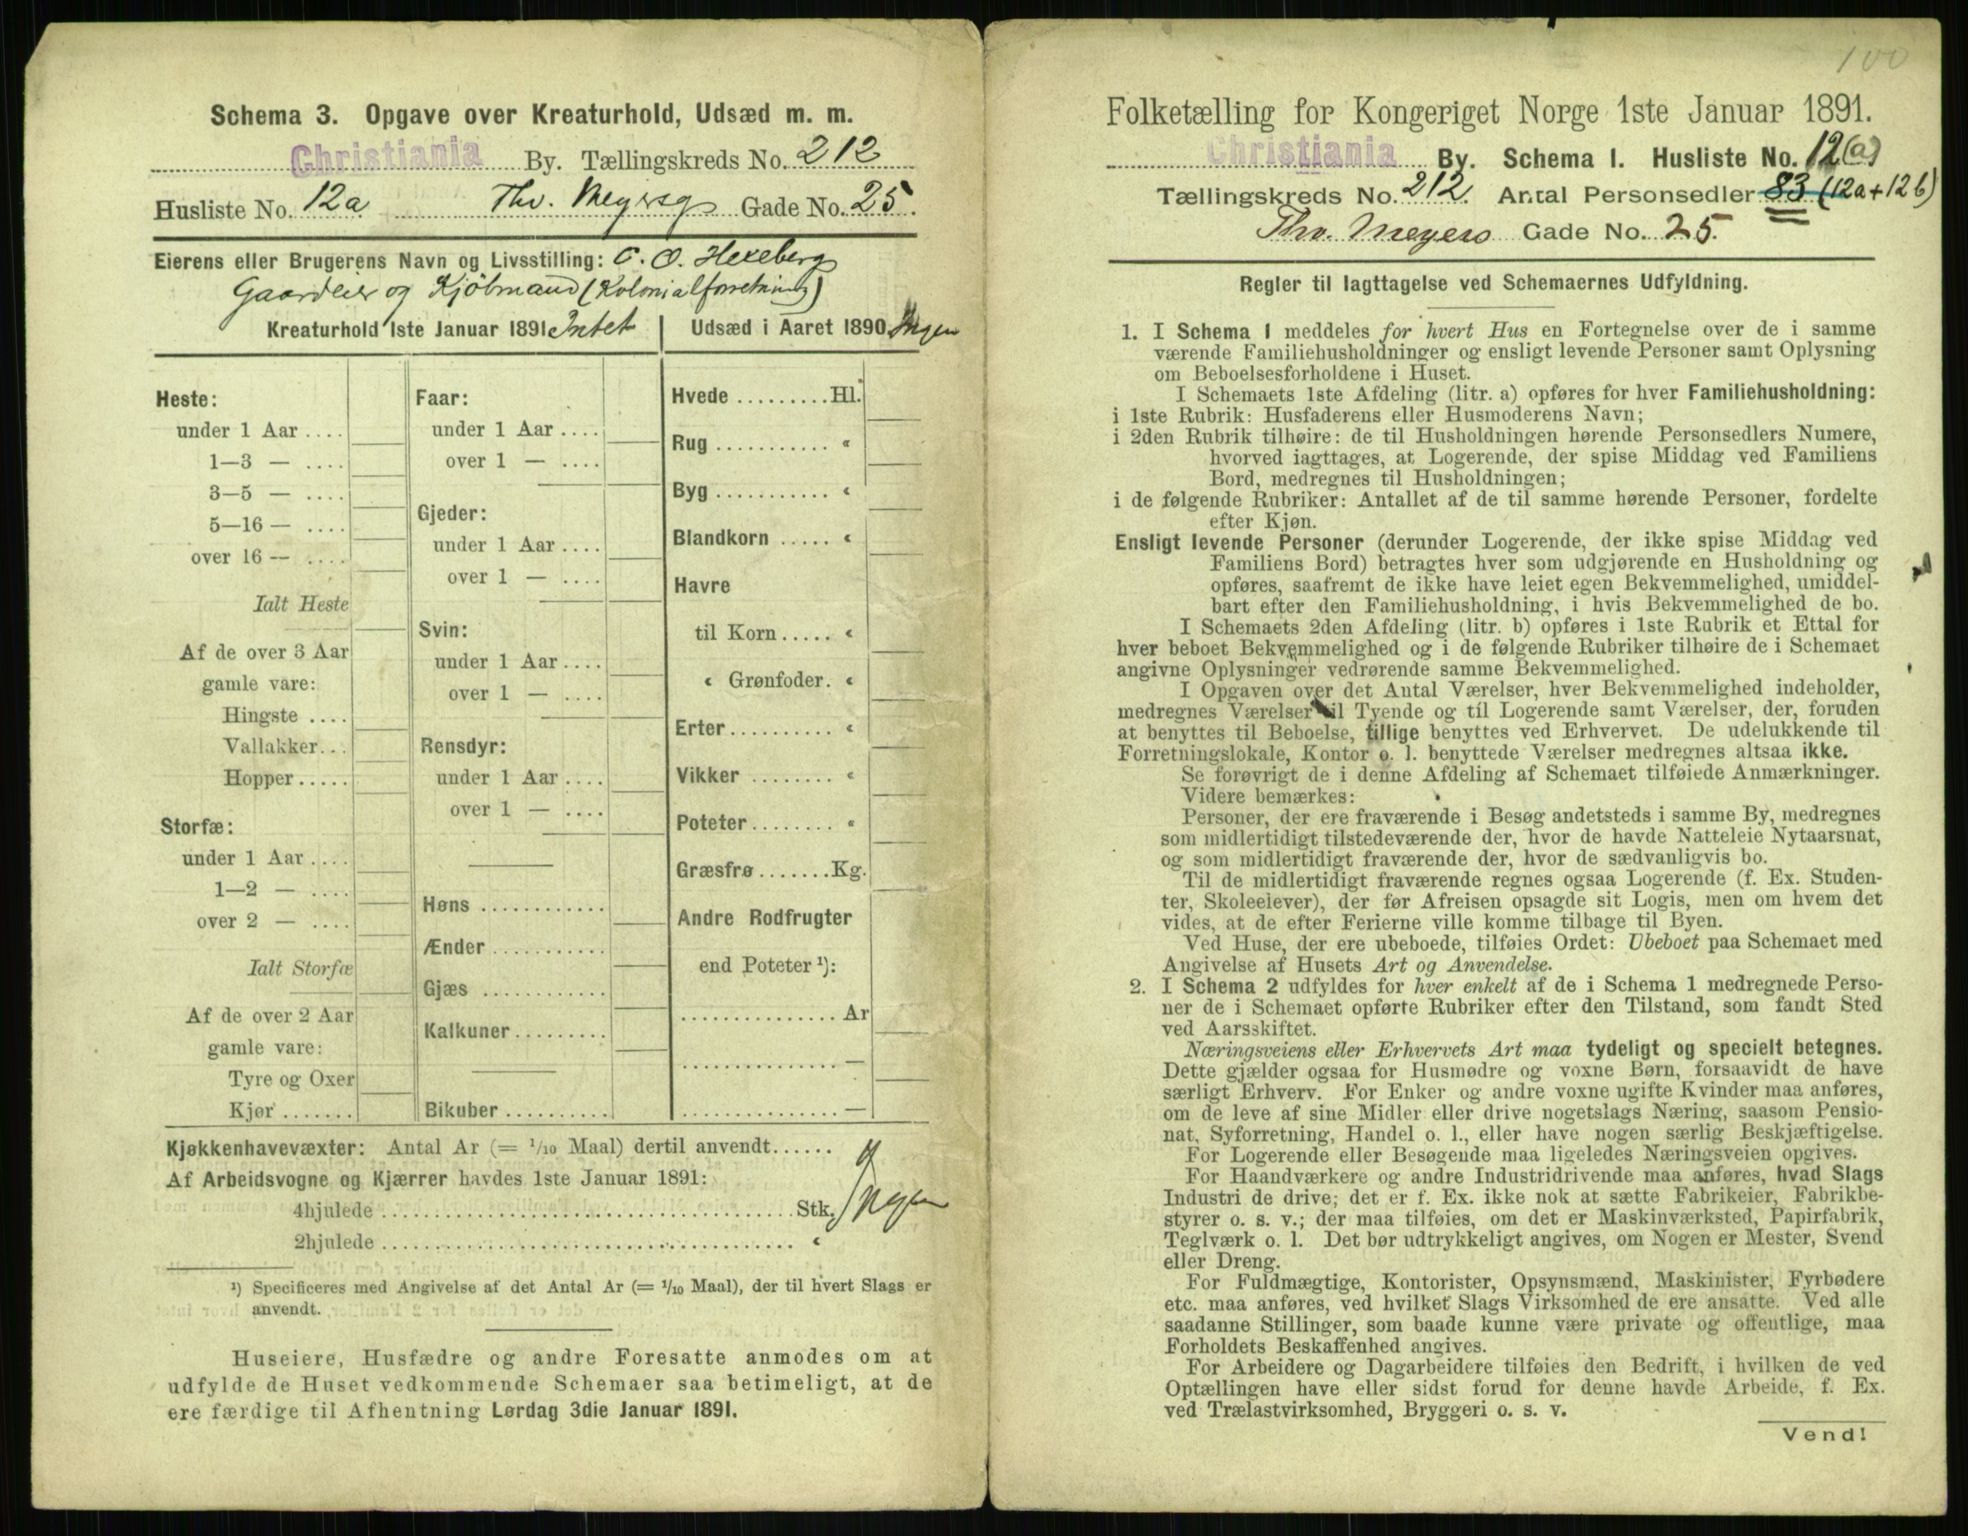 Schema 3. Opgave over Kreaturhold, Udsæd m. m.
Christiania By. Tællingskreds No. 212
Husliste No. 12a Thv. Meyersg Gade No. 25.
Eierens eller Brugerens Navn og Livsstilling: C. O. Hexeberg
Gaardeier og Kjöbmand (Kolonialforretning)
Kreaturhold 1ste Januar 1891 Intet
Udsæd i Aaret 1890. Ingen
Heste:
under 1 Aar ....
1—3 — ....
3—5 — ....
5—16 — ....
over 16 — ....
Ialt Heste
Af de over 3 Aar
gamle vare:
Hingste ....
Vallakker...
Hopper.....
Storfæ:
under 1 Aar ....
1—2 — ....
over 2 — ....
Ialt Storfæ
Af de over 2 Aar
gamle vare:
Tyre og Oxer
Kjør.......
Faar:
under 1 Aar ....
over 1 — ....
Gjeder:
under 1 Aar ....
over 1 — ....
Svin:
under 1 Aar ....
over 1 — ....
Rensdyr:
under 1 Aar ....
over 1 — ....
Høns ............
Ænder ...........
Gjæs ............
Kalkuner.........
Bikuber ..........
Hvede .........Hl.
Rug ........... "
Byg ........... "
Blandkorn ..... "
Havre
til Korn..... "
" Grønfoder. "
Erter.......... "
Vikker ........ "
Poteter........ "
Græsfrø .......Kg.
Andre Rodfrugter
end Poteter ¹):
............... Ar
............... —
............... —
Kjøkkenhavevæxter: Antal Ar (= 1/10 Maal) dertil anvendt......
Af Arbeidsvogne og Kjærrer havdes 1ste Januar 1891:
4hjulede ........................................ Stk. Ingen
2hjulede ........................................ "
¹) Specificeres med Angivelse af det Antal Ar (= 1/10 Maal), der til hvert Slags er
anvendt.
Huseiere, Husfædre og andre Foresatte anmodes om at
udfylde de Huset vedkommende Schemaer saa betimeligt, at de
ere færdige til Afhentning Lørdag 3die Januar 1891.
100
Folketælling for Kongeriget Norge 1ste Januar 1891.
Christiania By. Schema 1. Husliste No. 12(a)
Tællingskreds No. 212. Antal Personsedler 83 (12a+12b)
Thv. Meyers Gade No. 25.
Regler til Iagttagelse ved Schemaernes Udfyldning.
1. I Schema 1 meddeles for hvert Hus en Fortegnelse over de i samme
værende Familiehusholdninger og ensligt levende Personer samt Oplysning
om Beboelsesforholdene i Huset.
I Schemaets 1ste Afdeling (litr. a) opføres for hver Familiehusholdning:
i 1ste Rubrik: Husfaderens eller Husmoderens Navn;
i 2den Rubrik tilhøire: de til Husholdningen hørende Personsedlers Numere,
hvorved iagttages, at Logerende, der spise Middag ved Familiens
Bord, medregnes til Husholdningen;
i de følgende Rubriker: Antallet af de til samme hørende Personer, fordelte
efter Kjøn.
Ensligt levende Personer (derunder Logerende, der ikke spise Middag ved
Familiens Bord) betragtes hver som udgjørende en Husholdning og
opføres, saafremt de ikke have leiet egen Bekvemmelighed, umiddel-
bart efter den Familiehusholdning, i hvis Bekvemmelighed de bo.
I Schemaets 2den Afdeling (litr. b) opføres i 1ste Rubrik et Ettal for
hver beboet Bekvemmelighed og i de følgende Rubriker tilhøire de i Schemaet
angivne Oplysninger vedrørende samme Bekvemmelighed.
I Opgaven over det Antal Værelser, hver Bekvemmelighed indeholder,
medregnes Værelser til Tyende og til Logerende samt Værelser, der, foruden
at benyttes til Beboelse, tillige benyttes ved Erhvervet. De udelukkende til
Forretningslokale, Kontor o. l. benyttede Værelser medregnes altsaa ikke.
Se forøvrigt de i denne Afdeling af Schemaet tilføiede Anmærkninger.
Videre bemærkes:
Personer, der ere fraværende i Besøg andetsteds i samme By, medregnes
som midlertidigt tilstedeværende der, hvor de havde Natteleie Nytaarsnat,
og som midlertidigt fraværende der, hvor de sædvanligvis bo.
Til de midlertidigt fraværende regnes ogsaa Logerende (f. Ex. Studen-
ter, Skoleelever), der før Afreisen opsagde sit Logis, men om hvem det
vides, at de efter Ferierne ville komme tilbage til Byen.
Ved Huse, der ere ubeboede, tilføies Ordet: Ubeboet paa Schemaet med
Angivelse af Husets Art og Anvendelse.
2. I Schema 2 udfyldes for hver enkelt af de i Schema 1 medregnede Perso-
ner de i Schemaet opførte Rubriker efter den Tilstand, som fandt Sted
ved Aarsskiftet.
Næringsveiens eller Erhvervets Art maa tydeligt og specielt betegnes.
Dette gjælder ogsaa for Husmødre og voxne Børn, forsaavidt de have
særligt Erhverv. For Enker og andre voxne ugifte Kvinder maa anføres,
om de leve af sine Midler eller drive nogetslags Næring, saasom Pensio-
nat, Syforretning, Handel o. l., eller have nogen særlig Beskjæftigelse.
For Logerende eller Besøgende maa ligeledes Næringsveien opgives.
For Haandværkere og andre Industridrivende maa anføres, hvad Slags
Industri de drive; det er f. Ex. ikke nok at sætte Fabrikeier, Fabrikbe-
styrer o. s. v.; der maa tilføies, om det er Maskinværksted, Papirfabrik,
Teglværk o. l. Det bør udtrykkeligt angives, om Nogen er Mester, Svend
eller Dreng.
For Fuldmægtige, Kontorister, Opsynsmænd, Maskinister, Fyrbødere
etc. maa anføres, ved hvilket Slags Virksomhed de ere ansatte. Ved alle
saadanne Stillinger, som baade kunne være private og offentlige, maa
Forholdets Beskaffenhed angives.
For Arbeidere og Dagarbeidere tilføies den Bedrift, i hvilken de ved
Optællingen have eller sidst forud for denne havde Arbeide, f. Ex.
ved Trælastvirksomhed, Bryggeri o. s. v.
Vend!